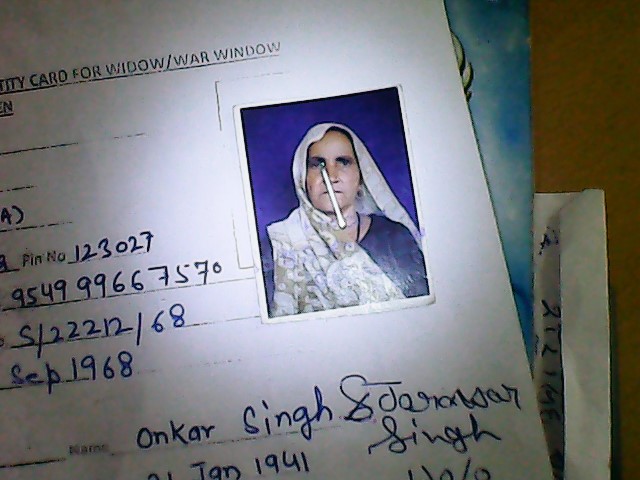 TITY CARD FOR WIDOW/WAR WINDOW
EN
A)
a Pin No 123027
9549 99667570
S/22212/68
Sep 1968
Name Onkar Singh & Jarawar
Singh
21 Jan 1941